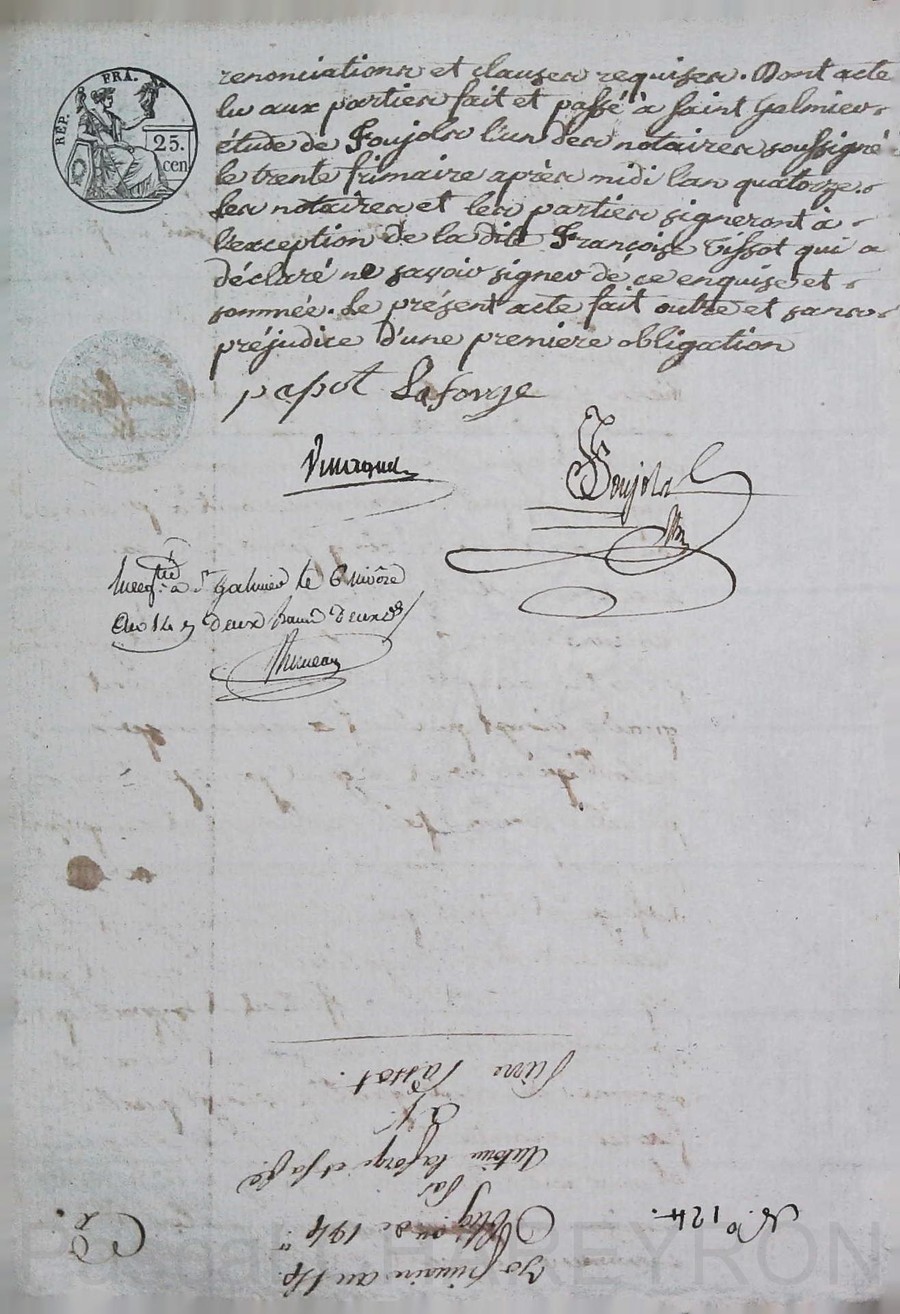 RÉP. FRA.
25.
cen
renonciations et clauses requises. Dont acte
lu aux parties fait et passé à Saint Galmier
étude de Foujols l'un des notaires soussigné
le trente frimaire après midi l'an quatorze.
Les notaires et les parties signeront à
l'exception de la dite Françoise Tissot qui a
déclaré ne savoir signer de ce enquise et
sommée. Le présent acte fait outre et sans
préjudice d'une premiere obligation
papot Laforge
Foujols
à St galmier le 6 nivôse
an 14
30 frimaire an 14.
Oblig.on de 194
Par
Antoine Laforge et sa fe
à
Pierre
N.o 124.